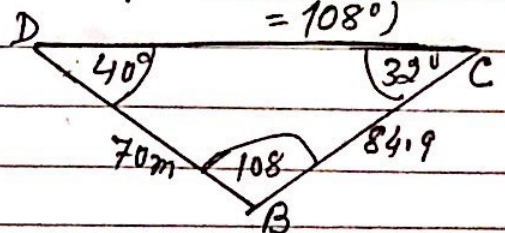 = 108°)
D
40°
32°
C
70m
108
84.9
B